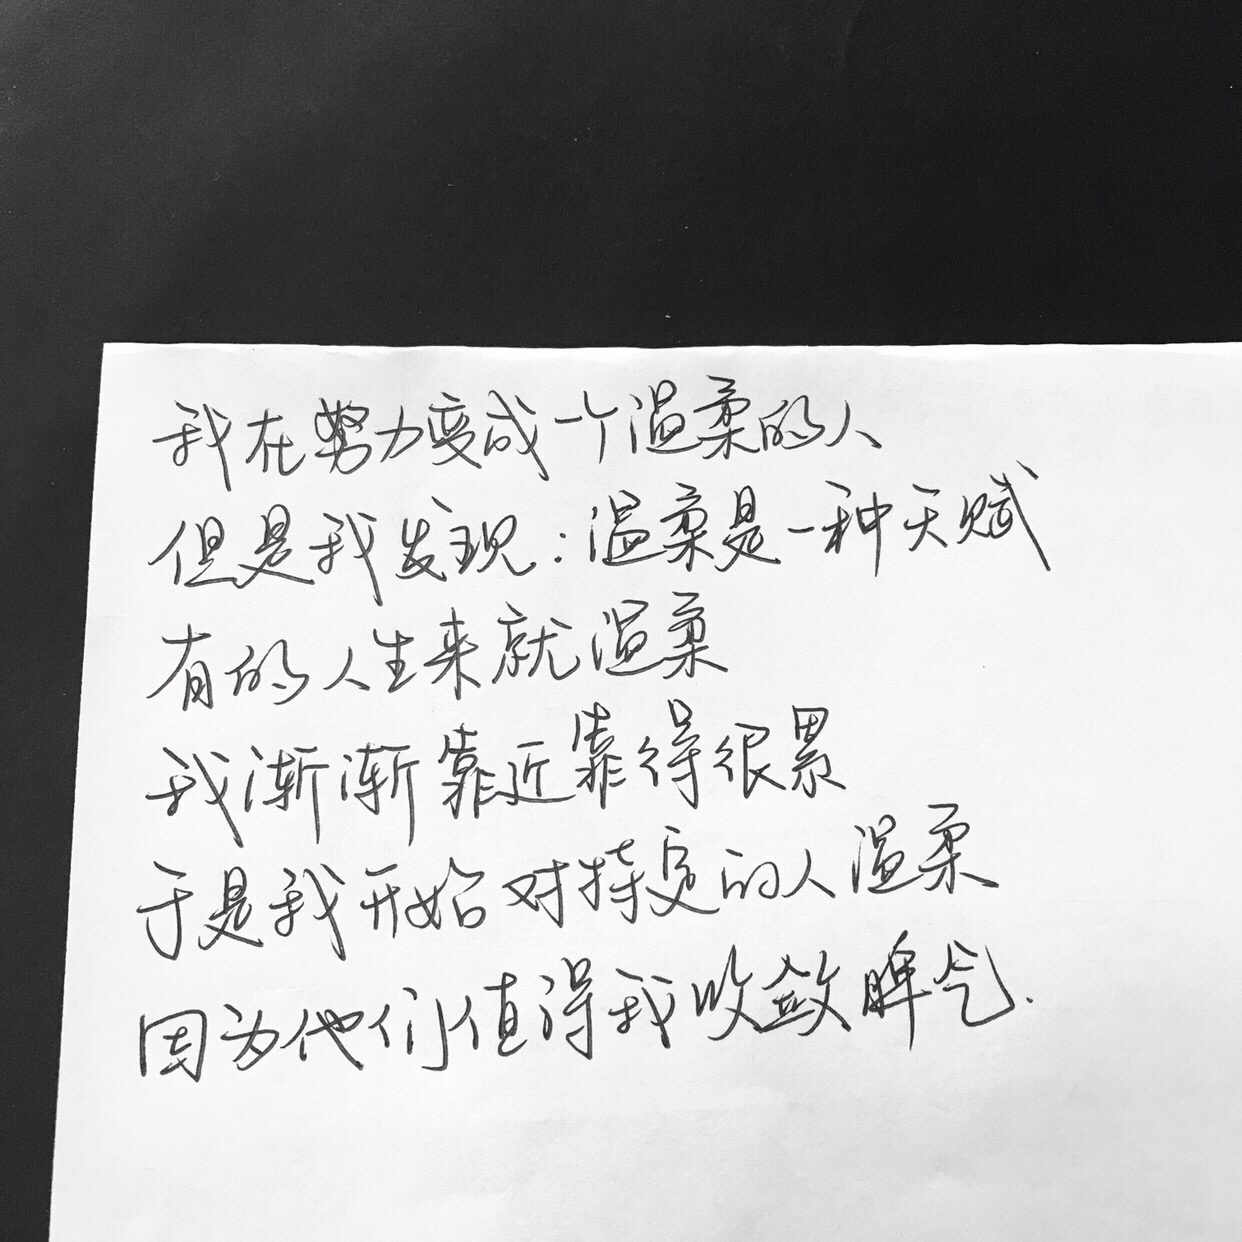 我在努力变成一个温柔的人
但是我发现：温柔是一种天赋
有的人生来就温柔
我渐渐靠近靠得很累
于是我开始对特定的人温柔
因为他们值得我收敛脾气.